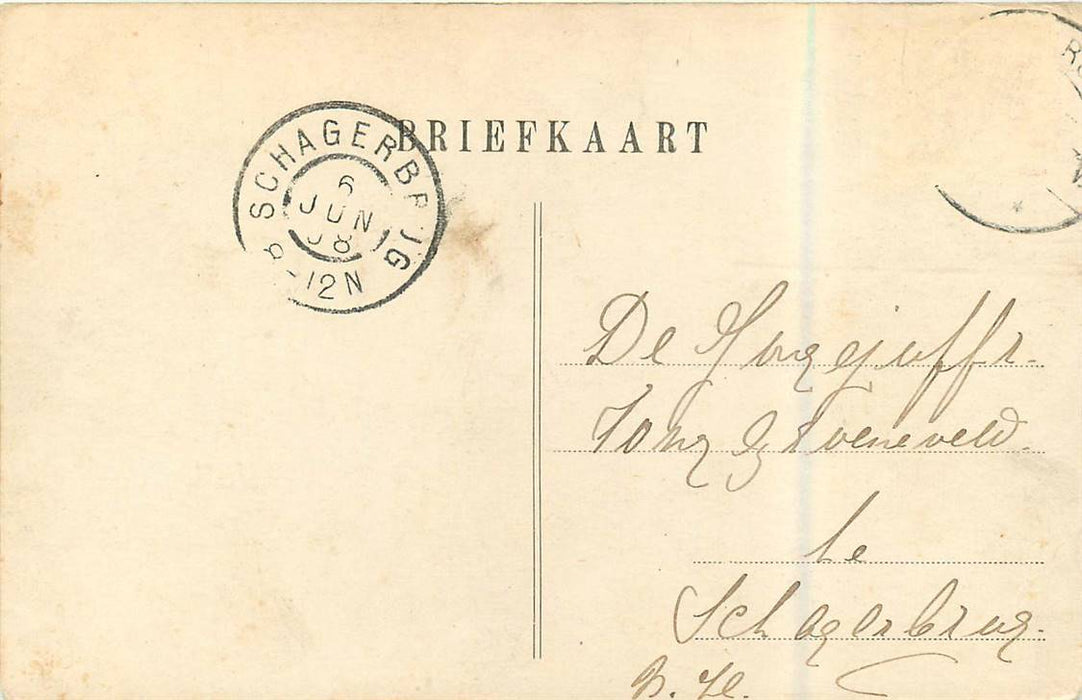 BRIEFKAART
SCHAGERBRUG
6
JUN
08
8-12N
De Jongejuffr.
Jong &
te
Schagerbrug.
N. H.